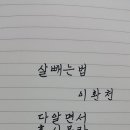 살빼는법
이환천
다알면서